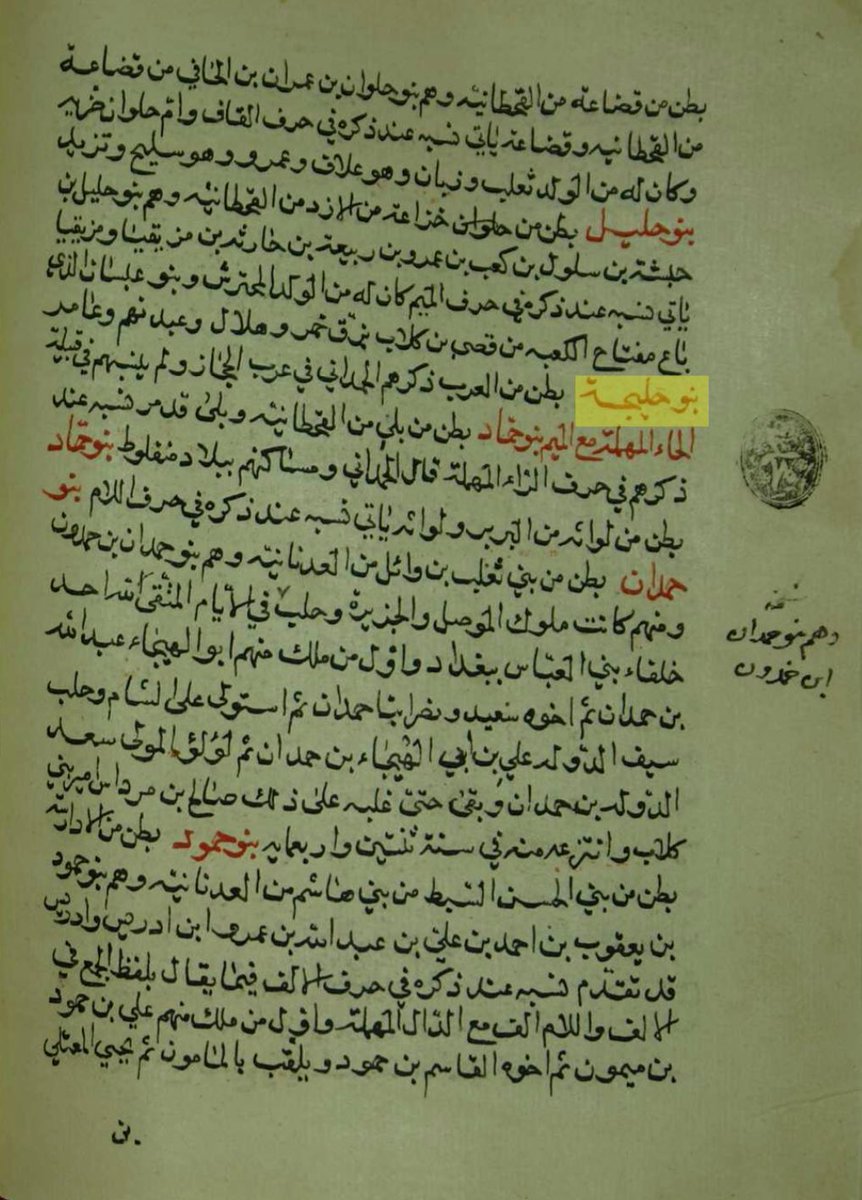 بطن من قضاعة من القحطانيه وهم بنو حلوان بن عمران بن الحافي من قضاعة
من القحطانيه وقضاعة ياتي نسبه عند ذكره في حرف القاف وام حلوان ضريه
وكان له من الولد ثعلب وزبان وهو علاف وعمرو وهو سليح وتزيد
بنو حليل بطن من حلوان خزاعة من الازد من القحطانيه وهم بنو حليل بن
حبشة بن سلول بن كعب بن عمرو بن ربيعة بن حارثه بن مزيقيا ومزيقيا
ياتي نسبه عند ذكره في حرف الميم كان له من الولد المحترش وبنو غبسان الذي
باع مفتاح الكعبه من قصي بن كلاب بزق خمر وهلال وعبد نهم وعامر
بنو حليمة بطن من العرب ذكرهم الحمداني في عرب الحجاز ولم ينسبهم في قبيلة
الحاء المهملة مع الميم بنو حماد بطن من بلي من القحطانيه وبلى قد مر نسبه عند
ذكرهم في حرف الزاء المهملة قال الحمداني ومساكنهم ببلاد منفلوط بنو حماد
بطن من لواثه من البربر ولواثه ياتي نسبه عند ذكره في حرف اللام بنو
حمدان بطن من بني تغلب بن وائل من العدنانيه وهم بنو حمدان بن حمدون
ومنهم كانت ملوك الموصل والجزيرة وحلب في الايام المتقى لله احد
خلفاء بني العباس ببغداد واول من ملك منهم ابو الهيجاء عبد الله
بن حمدان ثم اخوه سعيد ونصر ابنا حمدان ثم استولى على الشام وحلب
سيف الدوله علي بن ابي الهيجاء بن حمدان ثم لولؤ المولى سعد
الدوله بن حمدان وبقى حتى غلبه على ذلك صالح بن مرداس امير بني
كلاب وانتزعه منه في سنة ثنتين واربعمايه بنو حمود بطن من الادارسة
بطن من بني الحسن السبط من بني هاشم من العدنانيه وهم بنو حمود
بن يعقوب بن احمد بن علي بن عبد الله بن عمرو ابن ادريس وادريس
قد تقدم نسبه عند ذكره في حرف الالف فيما يقال بلفظ الجمع في
الالف واللام الف مع الدال المهملة واول من ملك منهم علي بن حمود
بن ميمون ثم اخوه القاسم بن حمود ويلقب بالمامون ثم يحيي المعتلي
نسخة
وهم بنو حمدان
ابن حمدون
بن